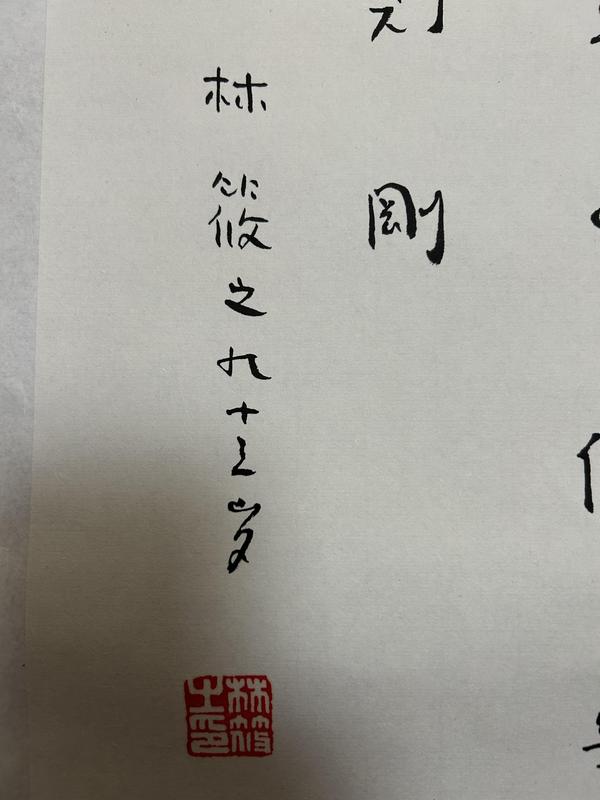 剛
林筱之九十三岁
林筱之印